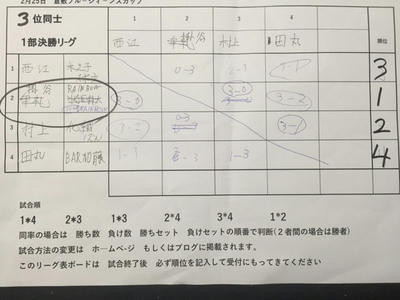 2月25日 倉敷ブルーウィーンズカップ
3位同士
1部決勝リーグ
1 2 3 4
西江 掛谷 村上 田丸 順位
1 西江 0-3 3
掛谷 RAINBOW
2 3-0 3-0 3-2 1
3 村上 0-3 2
4 田丸 BAR加藤 1-3 2-3 1-3 4
試合順
1*4 2*3 1*3 2*4 3*4 1*2
同率の場合は 勝ち数 負け数 勝ちセット 負けセットの順番で判断(2者間の場合は勝者)
試合方法の変更は ホームページ もしくはブログに掲載されます。
このリーグ表ボードは 試合終了後 必ず順位を記入して受付にもってきてください